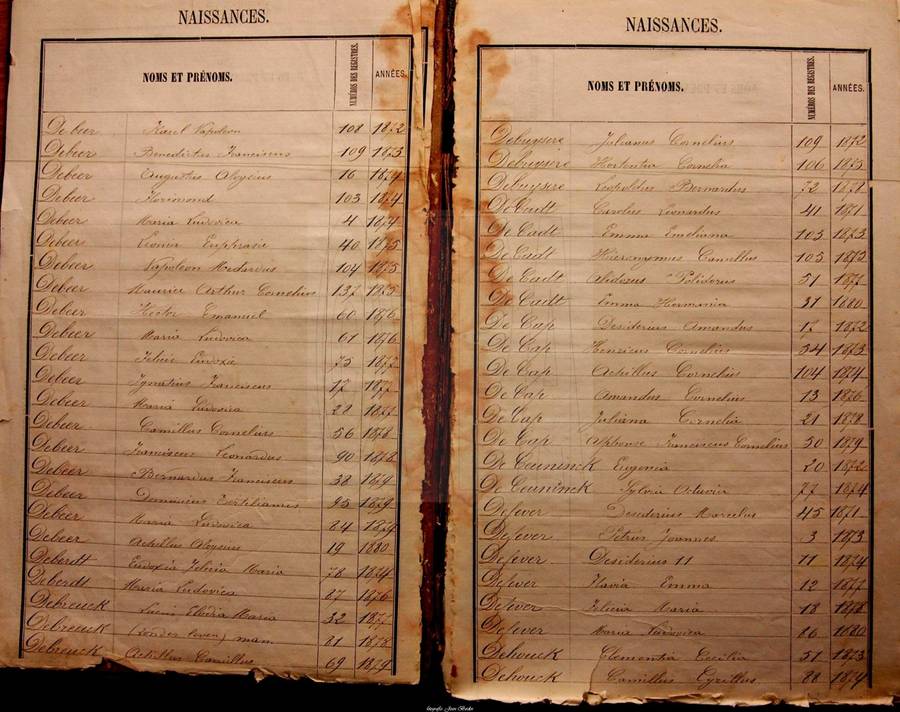 NAISSANCES.
NOMS ET PRÉNOMS. NUMÉROS DES REGISTRES. ANNÉES.
De beer Karel Napoleon 108 1872
Debeer Benedictus Franciscus 109 1873
Debeer Augustus Aloysius 16 1874
Debeer Florimond 103 1874
Debeer Maria Ludovica 4 1874
Debeer Leonia Euphrasie 40 1875
Debeer Napoleon Medardus 104 1875
Debeer Maurice Arthur Cornelius 137 1875
Debeer Hector Emanuel 60 1876
Debeer Maria Ludovica 61 1876
Debeer Felicie Eudoxie 75 1877
Debeer Ignatius Franciscus 17 1877
Debeer Maria Ludovica 28
Debeer Camillus Cornelius 56 1878
Debeer Franciscus Leonardus 90 1878
Debeer Bernardus Franciscus 38 1879
Debeer Dominicus 95 1879
Debeer Maria Ludovica 84 1879
Debeer Achillus Aloysius 19 1880
Deberdt Eudoxia Felicia Maria 78 1874
Deberdt Maria Ludovica 87 1876
Debreuck Lucia Elodia Maria 32 1877
Debreuck (zonder leven) man 81 1878
Debreuck Achillus Camillus 69 1879
NAISSANCES.
NOMS ET PRÉNOMS. NUMÉROS DES REGISTRES. ANNÉES.
Debuysere Julianus Cornelius 109 1872
Debuysere Hortentia Cornelia 106 1873
Debuysere Leopoldus Bernardus 72 1871
De Cadt Carolus Leonardus 41 1871
De Cadt Emma Emeliana 103 1873
De Cadt Hieronymus Camillus 103 1873
De Cadt Polidorus 51 1877
De Cadt Emma Hermania 31 1880
De Cap Desiderius Amandus 17 1872
De Cap Henricus Cornelius 54 1873
De Cap Achillus Cornelius 104 1874
De Cap Amandus Cornelius 13 1876
De Cap Juliana Cornelia 21 1878
De Cap Alphonse Franciscus Cornelius 50 1879
De Ceuninck Eugenia 20 1872
De Ceuninck Sylvia Octavia 77 1874
Defever Desiderius Marcelus 45 1871
Defever Petrus Joannes 3 1873
Defever Desiderius 11 1874
Defever Flavia Emma 12 1877
Defever Felicia Maria 18 1878
Defever Maria Ludovica 86 1880
Dehouck Clementia Cecilia 51 1873
Dehouck Camillus Cyrillus 88 1874